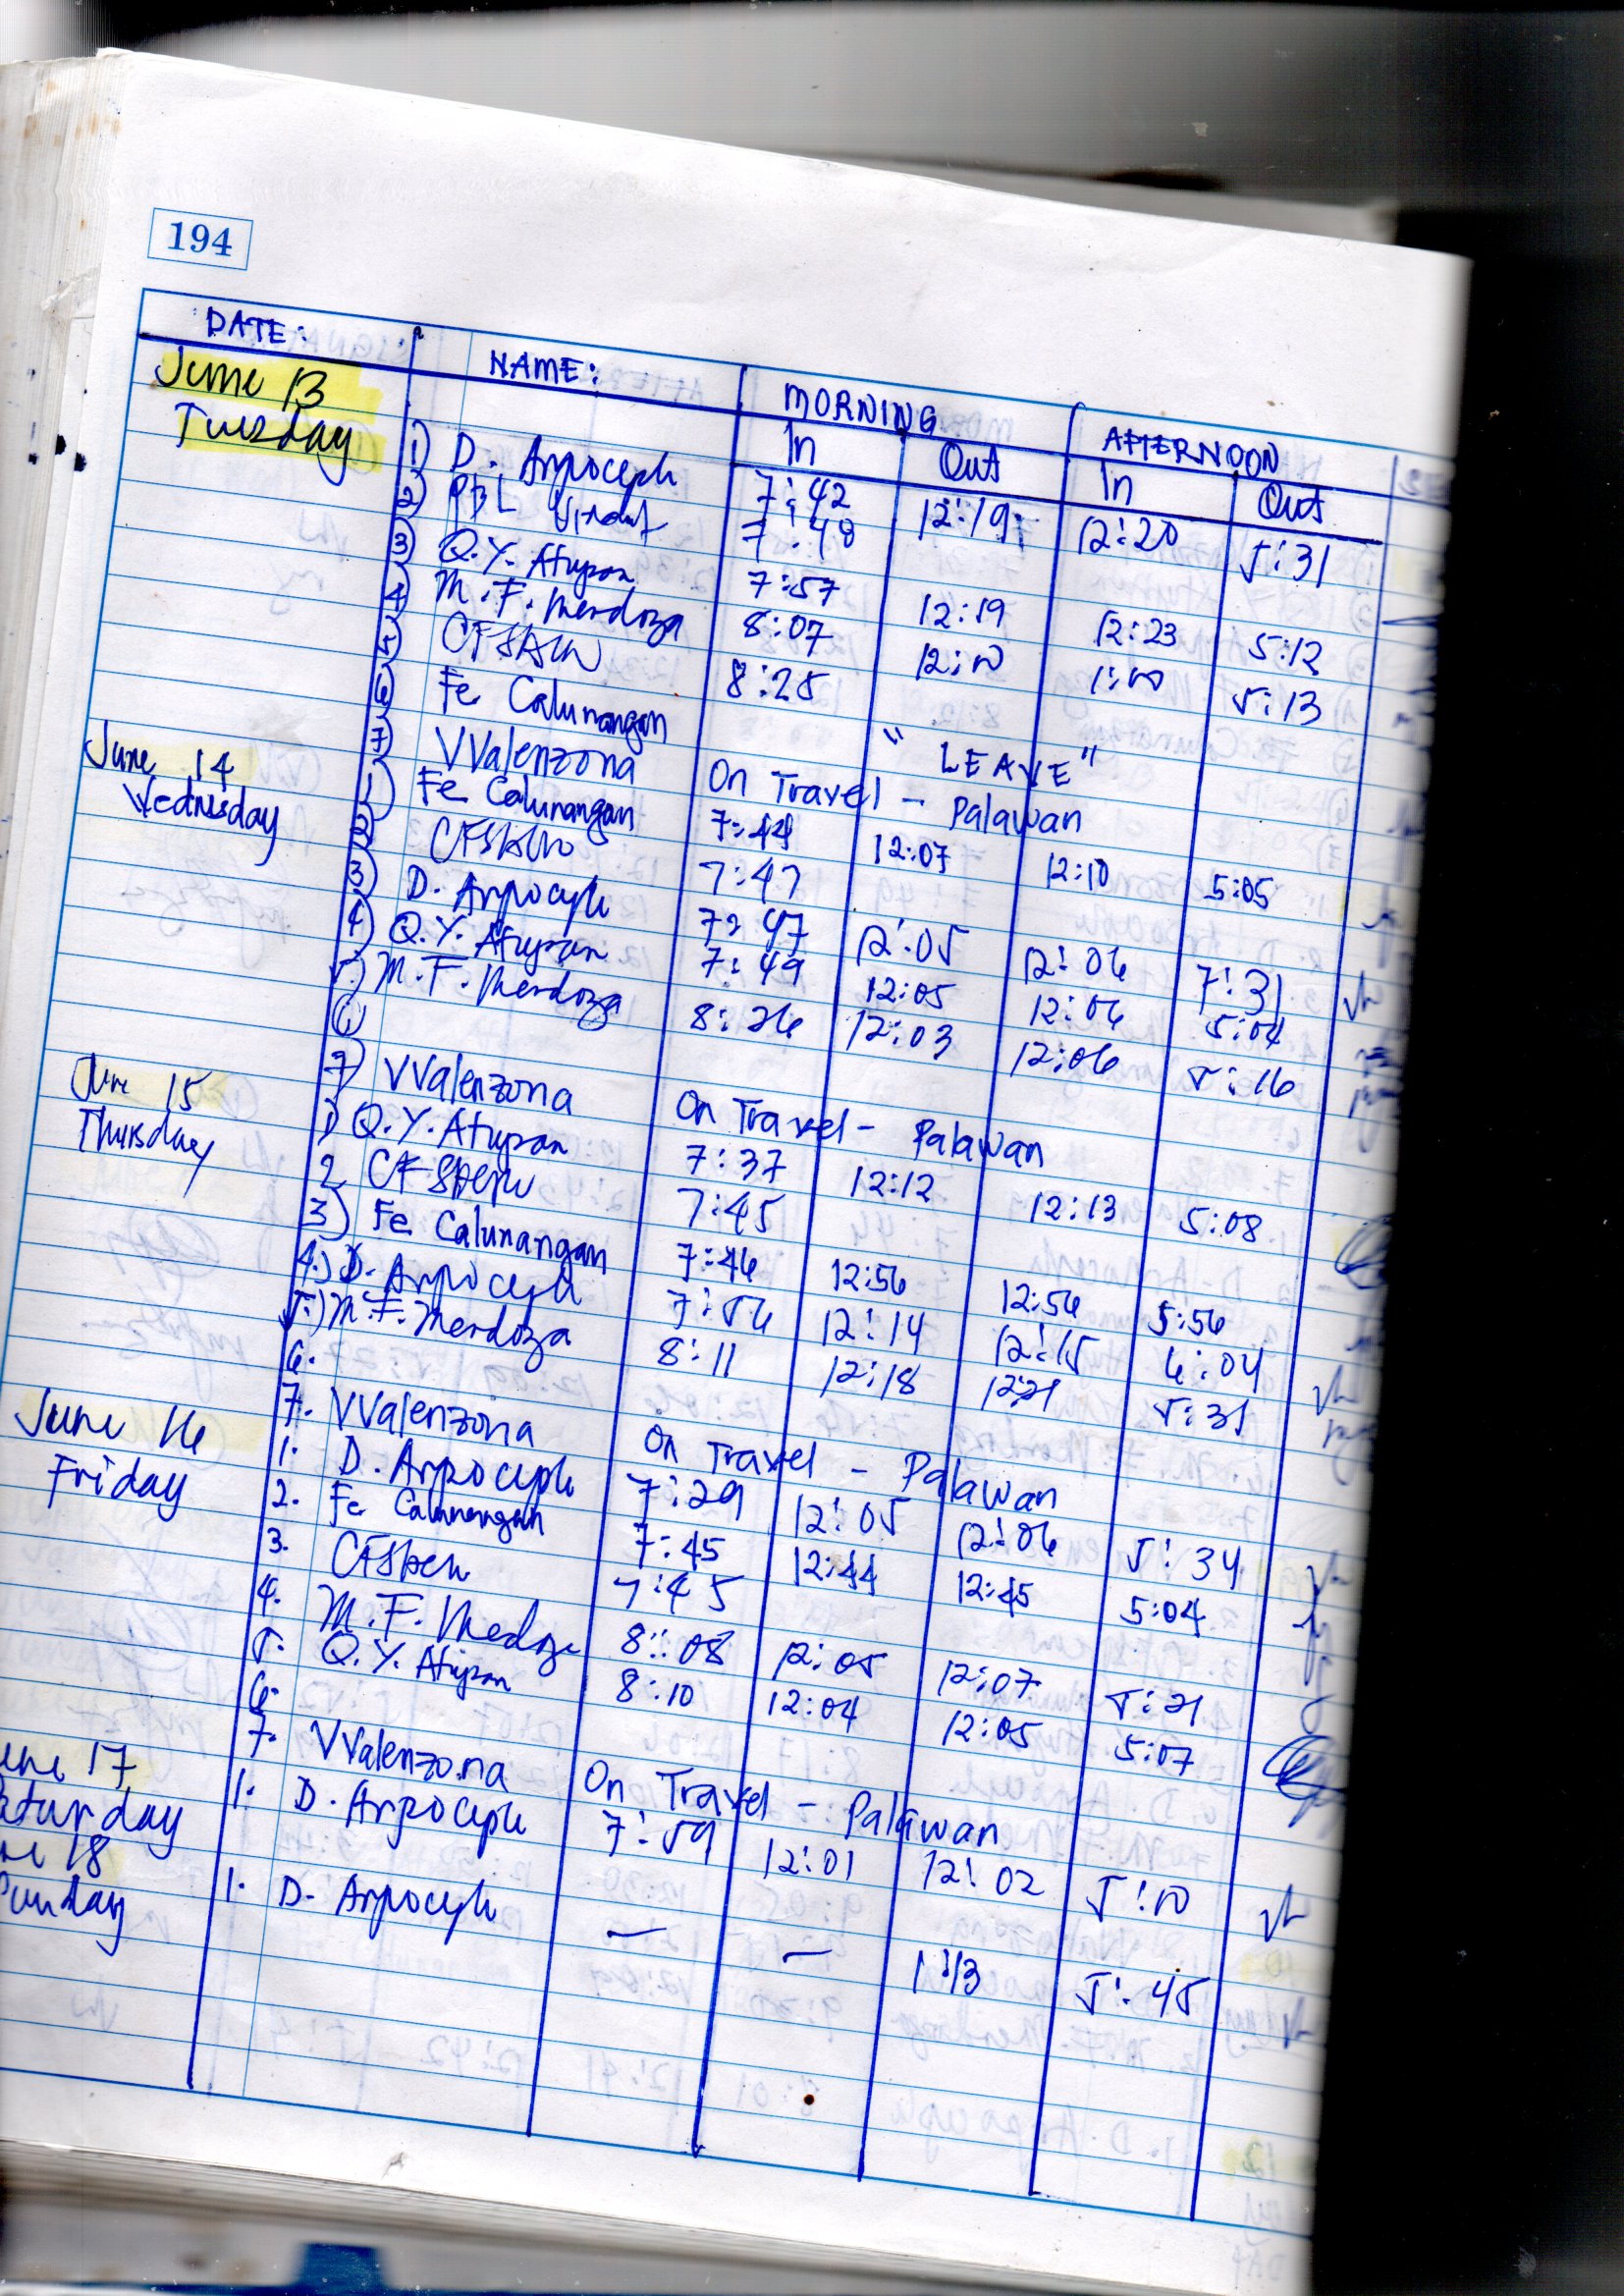 194
DATE: NAME: MORNING AFTERNOON
In Out In Out
June 13
Tuesday
1) D. 7:42 12:19 12:20 5:31
2) PBL 7:48
3) Q.Y. Atupan 7:57 12:19 12:23 5:12
4) M.F. Mendoza 8:07 12:10 1:00 5:13
5) 8:25
6) Fe Calunangan "LEAVE"
7) VValenzona On Travel - Palawan
June 14
Wednesday
1) Fe Calunangan 7:44 12:07 12:10 5:05
2) 7:47
3) D. 7:47 12:05 12:06 7:31
4) Q.Y. Atupan 7:49 12:05 12:06 5:04
5.) M.F. Mendoza 8:26 12:03 12:06 5:16
6)
7) VValenzona On Travel - Palawan
June 15
Thursday
1) Q.Y. Atupan 7:37 12:12 12:13 5:08
2 7:45
3) Fe Calunangan 7:46 12:56 12:56 5:56
4.) D. 7:56 12:14 12:15 6:04
5.) M.F. Mendoza 8:11 12:18 12:21 5:31
6.
7. VValenzona On Travel - Palawan
June 16
Friday
1. D. 7:29 12:05 12:06 5:34
2. Fe Calunangan 7:45 12:44 12:45 5:04
3. 7:45
4. M.F. Medoza 8:08 12:05 12:07 5:21
5. Q.Y. Atupan 8:10 12:04 12:05 5:07
6.
7. VValenzona On Travel - Palawan
une 17
aturday
1. D. 7:59 12:01 12:02 5:10
ne 18
Sunday
1. D. — — 1:13 5:45